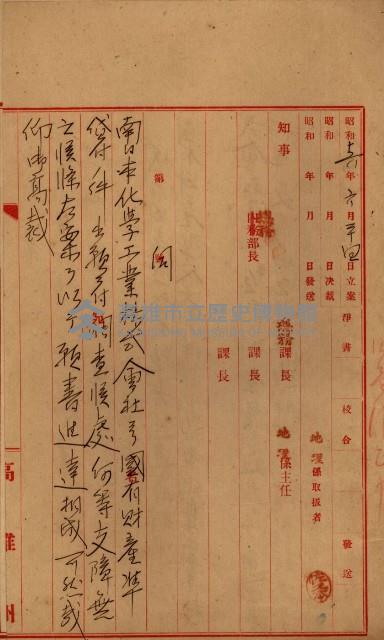 昭和十六年六月二十四日立案 淨書 校合 發送
昭和 年 月 日決裁 地理係取扱者
昭和 年 月 日發送
知事 總務部長 課長 地理係主任
課長
課長
第 伺
南日本化学工業株式會社ヨリ國有財產準
貸付件出願ニ付調査候處何等支障無
之候條左案ノ以テ願書進達相成可然哉
仰御高裁
高雄州
高雄市立歷史博物館